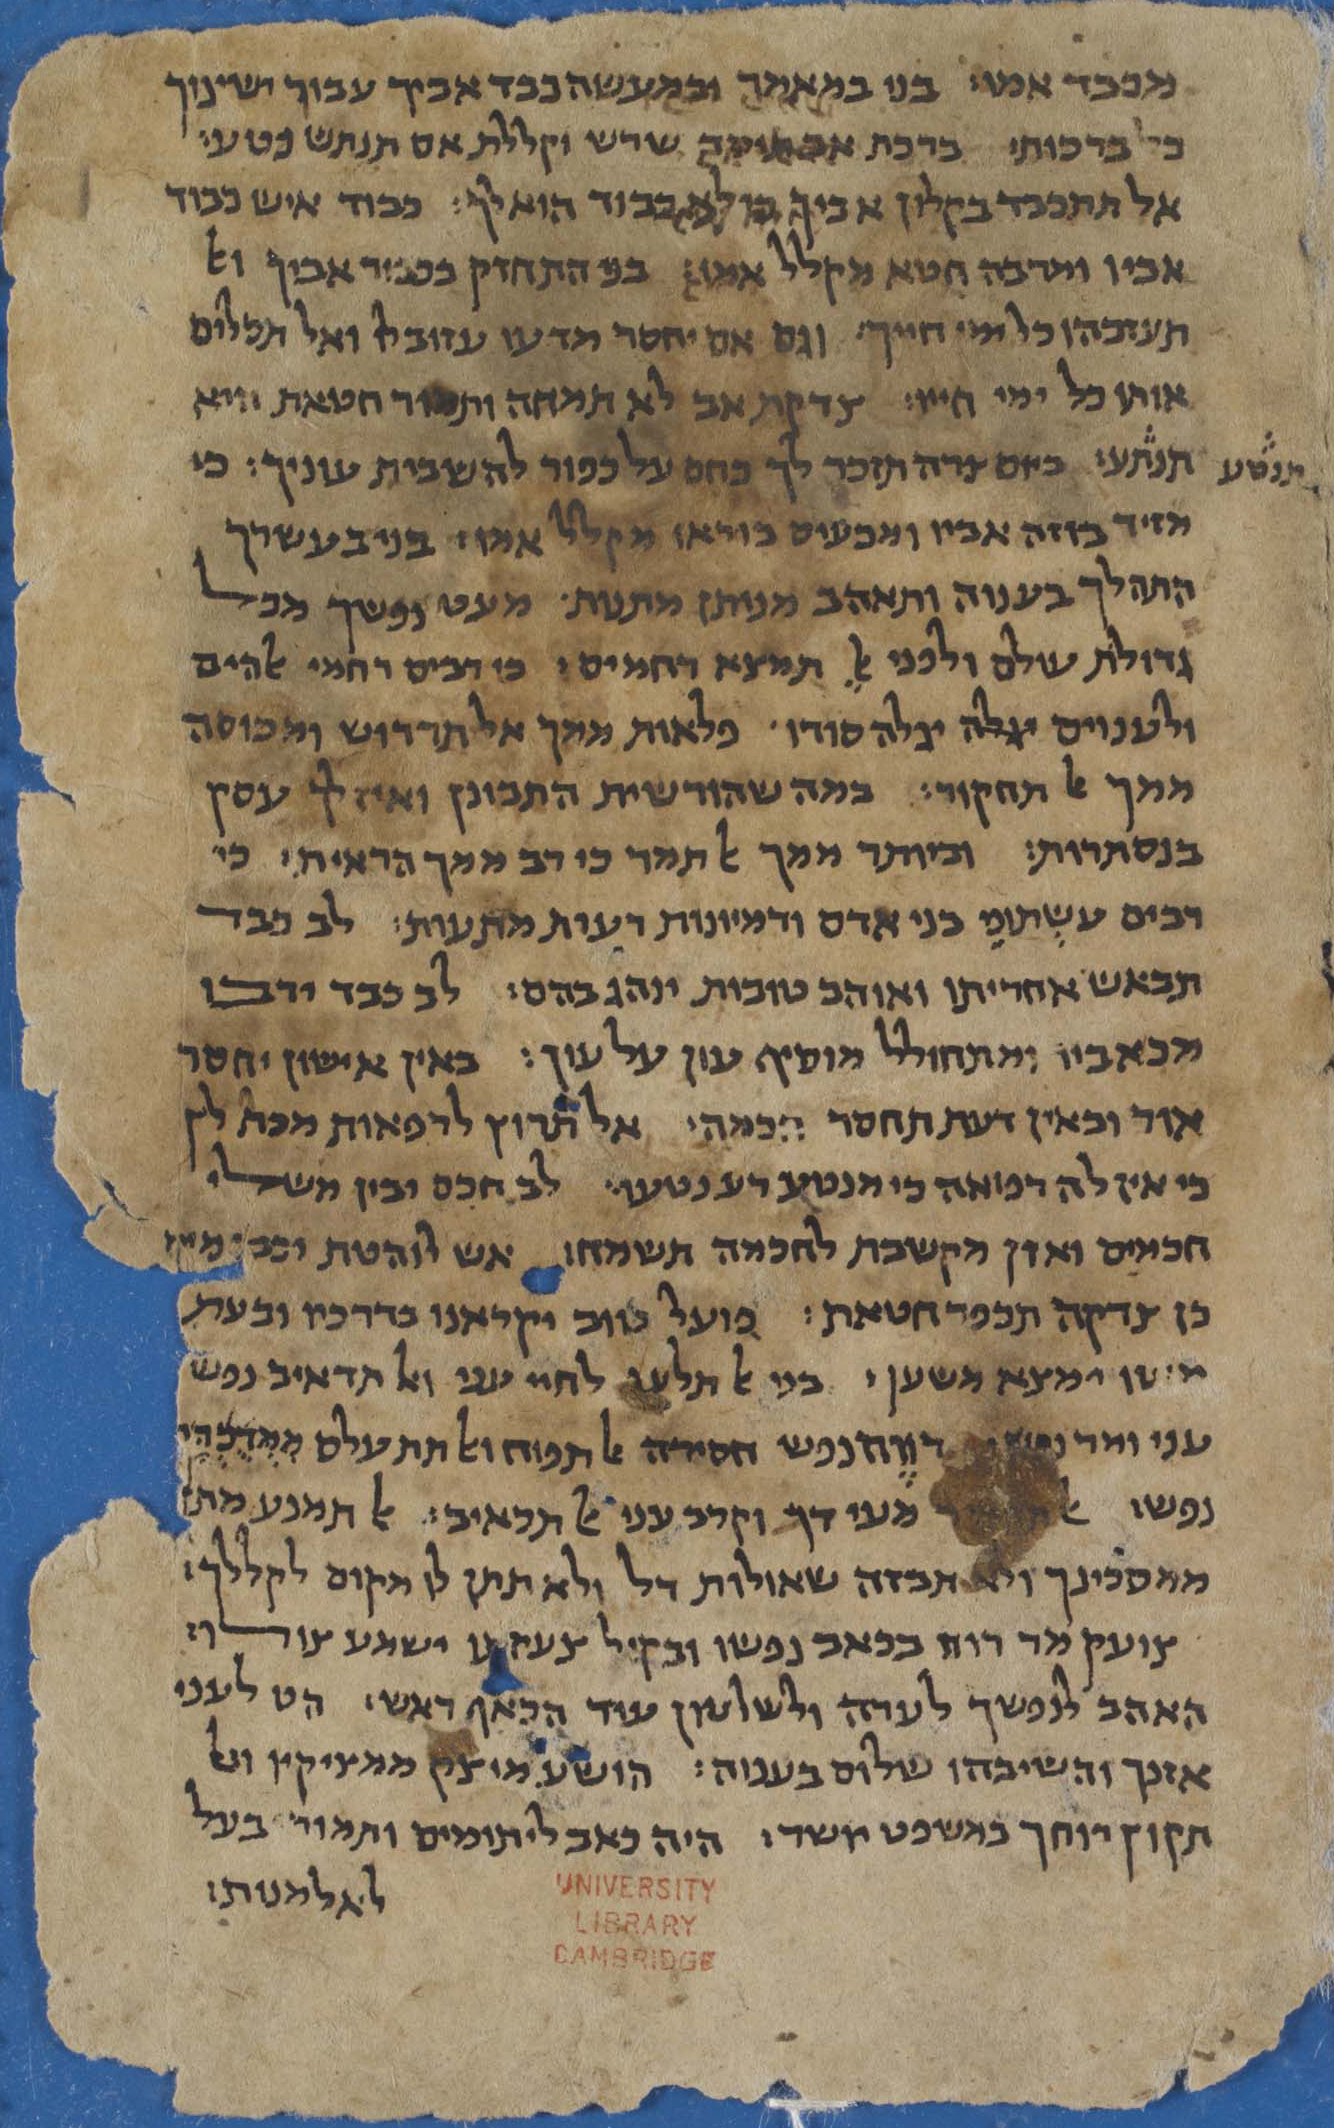 מכבד אמו׃ בני במאמר ובמעשה כבד אביך עבור ישיגוך
כל ברכות׃ ברכת אב תיסד שרש וקללת אם תנתש נטע׃
אל תתכבד בקלון אביך כי לא כבוד הוא לך׃ כבוד איש כבוד
אביו ומרבה חטא מקלל אמו׃ בני התחזק בכבוד אביך ואל
תעזבהו כל ימי חייך׃ וגם אם יחסר מדעו עזוב לו ואל תכלים
אותו כל ימי חייו׃ צדקת אב לא תמחה ותמור חטאת היא
תנתע׃ ביום צרה תזכר לך כחם על כפור להשבית עוניך׃ כי
תנטע
מזיד בוזה אביו ומכעיס בוראו מקלל אמו׃ בני בעשרך
התהלך בענוה ותאהב מנותן מתנות׃ מעט נפשך מכל
גדולת עולם ולפני אל תמצא רחמים׃ כי רבים רחמי אלהים
ולענוים יגלה יגלה סודו׃ פלאות ממך אל תדרוש ומכוסה
ממך אל תחקור׃ במה שהורשית התבונן ואין לך עסק
בנסתרות׃ וביותר ממך אל תמר כי רב ממך הראית׃ כי
רבים עשתוני בני אדם ודמיונות רעות מתעות׃ לב כבד
תבאש אחריתו ואוהב טובות ינהג בהם׃ לב כבד ירבו
מכאביו ומתחולל מוסיף עון על עון׃ באין אישון יחסר
אור ובאין דעת תחסר חכמה׃ אל תרוץ לרפאות מכת לץ
כי אין לה רפואה כי מנטע רע נטעו׃ לב חכם יבין משלי
חכמים ואזן מקשבת לחכמה תשמח׃ אש לוהטת יכבו מים
כן צדקה תכפר חטאת׃ פועל טוב יקראנו בדרכיו ובעת
מוטו ימצא משען׃ בני אל תלעג לחיי עני ואל תדאיב נפש
עני ומר נפש׃ רוח נפש חסירה אל תפוח ואל תתעלם ממדכדך
נפש׃ אל מעי דך וקרב עני אל תכאיב׃ אל תמנע מתן
ממסכינך ולא תבזה שאולות דל ולא תתן לו מקום לקללך׃
צועק מר רוח בכאב נפשו ובקול צעקתו ישמע צורו׃
האהב לנפשך לעדה ולשלטון עוד הכאף ראש׃ הט לעני
אזנך והשיבהו שלום בענוה׃ הושע מוצק ממציקיו ואל
תקוץ רוחך במשפט יושר׃ היה כאב ליתומים ותמור בעל
לאלמנות׃
UNIVERSITY
LIBRARY
CAMBRIDGE